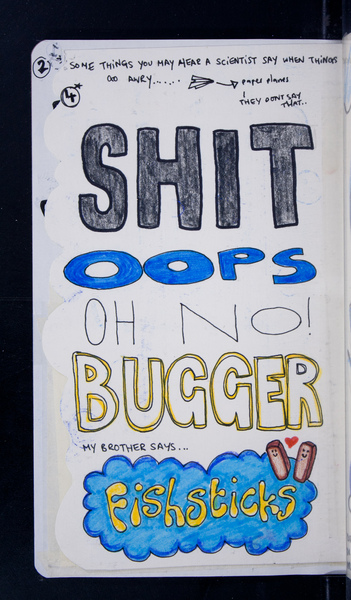 2 SOME THINGS YOU MAY HEAR A SCIENTIST SAY WHEN THINGS
GO AWRY...... → paper planes
THEY DON'T SAY
THAT..
4
SHIT
OOPS
OH NO!
BUGGER
MY BROTHER SAYS...
Fishsticks